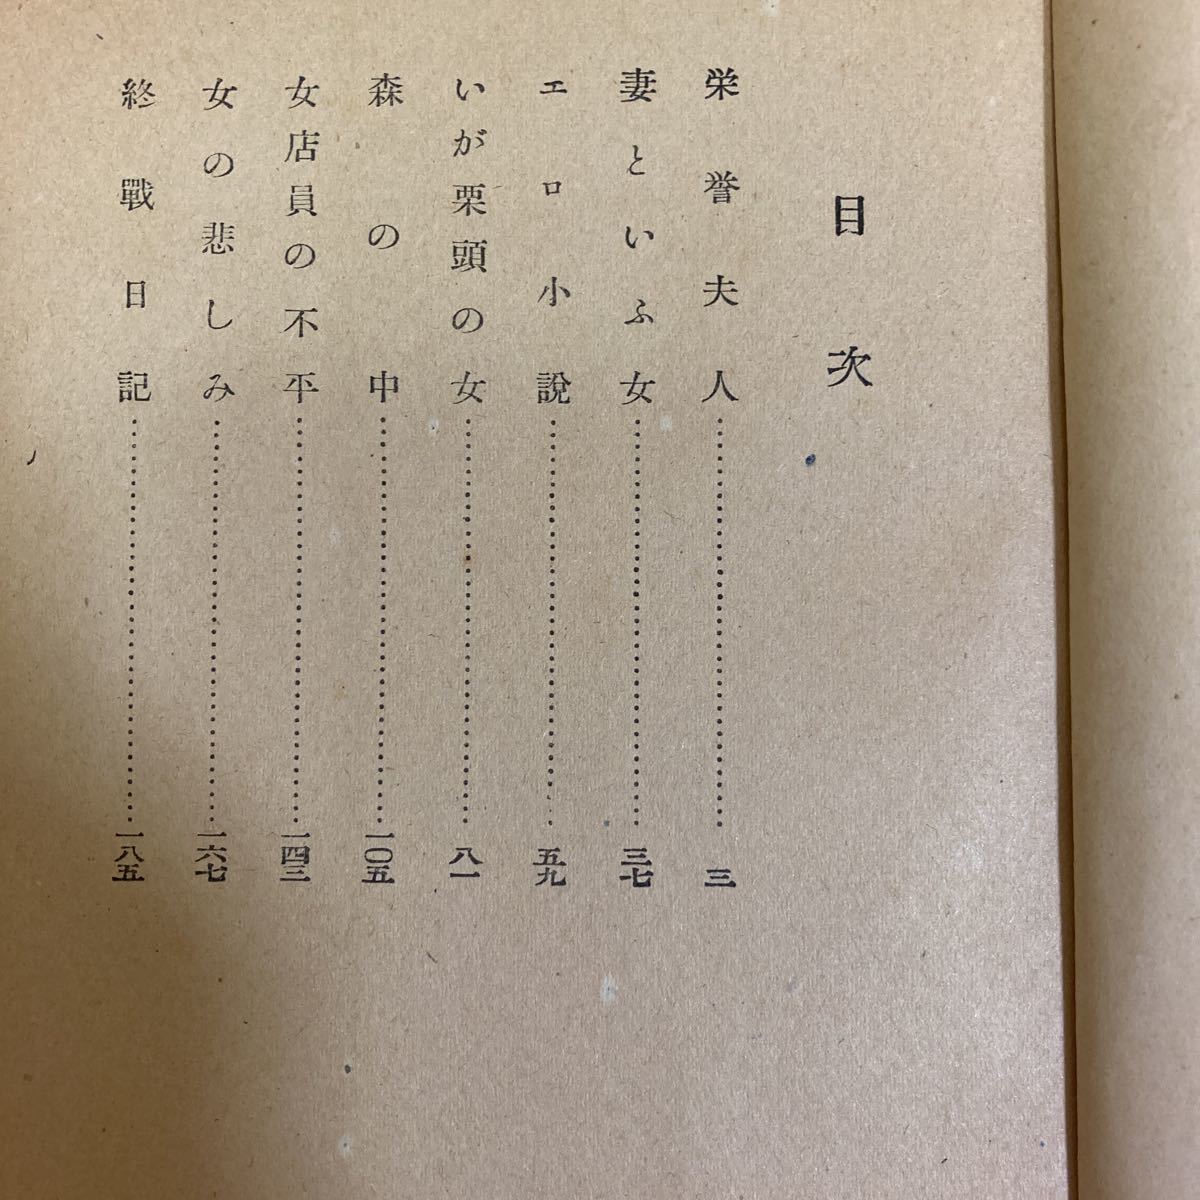 目次
栄誉夫人……三
妻といふ女……三七
エロ小説……五九
いが栗頭の女……八一
森の中……一〇五
女店員の不平……一四三
女の悲しみ……一六七
終戰日記……一八五